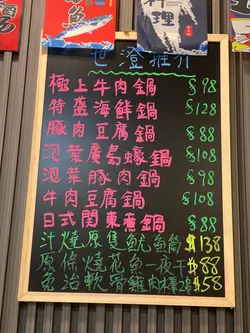 料理
色澄推介
極上牛肉鍋 $98
特盛海鮮鍋 $128
豚肉豆腐鍋 $88
泡菜廣島蠔鍋 $108
泡菜豚肉鍋 $98
牛肉豆腐鍋 $108
日式関東煮鍋 $88
汁燒原隻魷魚筒 $138
原條燒花魚一夜干 $88
炙治軟骨雞肉棒2串 $58